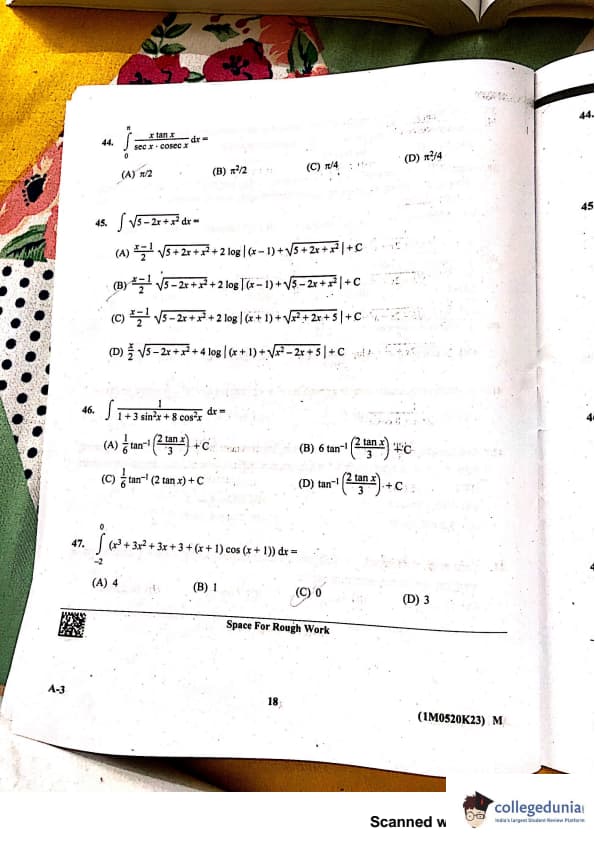 44. ∫₀^π x tan x / (sec x · cosec x) dx =
(A) π/2 (B) π²/2 (C) π/4 (D) π²/4
45. ∫ √(5 – 2x + x²) dx =
(A) (x – 1)/2 √(5 + 2x + x²) + 2 log | (x – 1) + √(5 + 2x + x²) | + C
(B) (x – 1)/2 √(5 – 2x + x²) + 2 log | (x – 1) + √(5 – 2x + x²) | + C
(C) (x – 1)/2 √(5 – 2x + x²) + 2 log | (x + 1) + √(x² + 2x + 5) | + C
(D) x/2 √(5 – 2x + x²) + 4 log | (x + 1) + √(x² – 2x + 5) | + C
46. ∫ 1/(1 + 3 sin²x + 8 cos²x) dx =
(A) 1/6 tan⁻¹ (2 tan x/3) + C (B) 6 tan⁻¹ (2 tan x/3) + C
(C) 1/6 tan⁻¹ (2 tan x) + C (D) tan⁻¹ (2 tan x/3) + C
47. ∫₋₂^0 (x³ + 3x² + 3x + 3 + (x + 1) cos (x + 1)) dx =
(A) 4 (B) 1 (C) 0 (D) 3
Space For Rough Work
A-3
18
(1M0520K23) M
44.
45
Scanned w
collegedunia
India's largest Student Review Platform